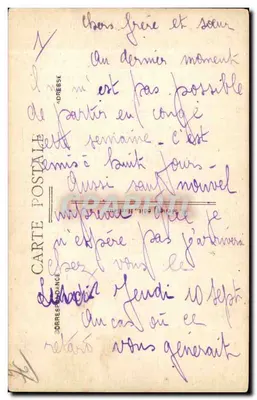 1
Chers frère et sœur
Au dernier moment
il ne m'est pas possible
de partir en congé
cette semaine - c'est
remis à huit jours -
Aussi sauf nouvel
imprévu que je
n'espère pas j'arriverai
chez vous le
Jeudi 10 Sept.
Au cas où ce
retard vous gênerait
CARTE POSTALE
CORRESPONDANCE
ADRESSE